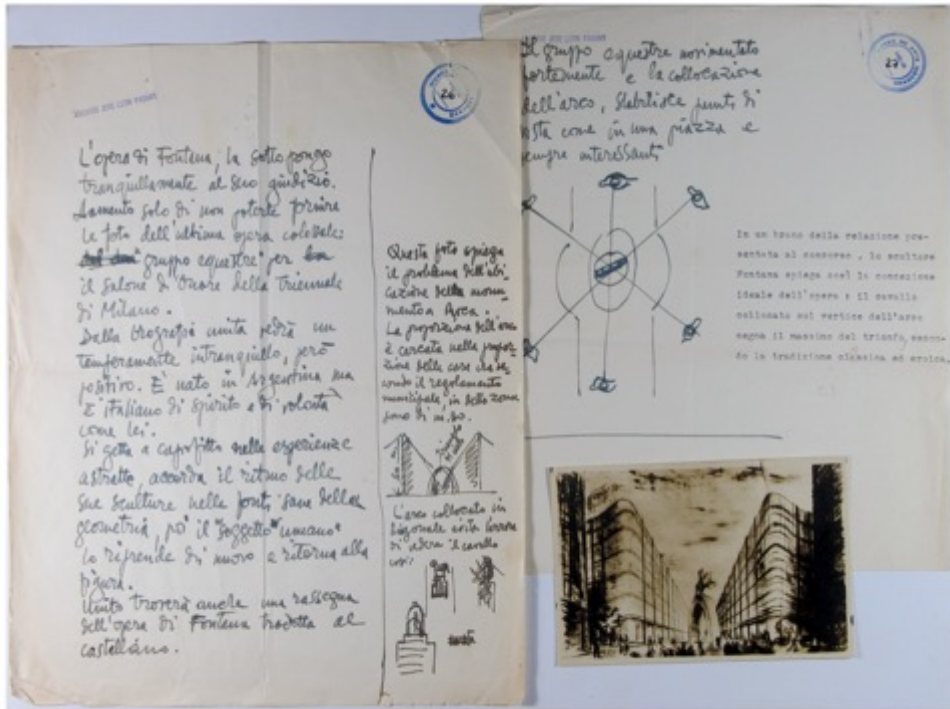 26
L'opera di Fontana, la sotto pongo
tranquillamente al suo giudizio.
Lamento solo di non poterle fornire
le foto dell'ultima opera colossale:
gruppo equestre per
il salone di Onore della Triennale
di Milano.
Dalla biografia unita vedrà un
temperamento intranquillo, però
positivo. È nato in Argentina ma
è italiano di spirito e di volontà
come lei.
Si getta a capofitto nelle esperienze
astratte, accorda il ritmo delle
sue sculture nelle fonti sane della
geometria, poi il "soggetto umano"
lo riprende di nuovo e ritorna alla
figura.
Unito troverà anche una rassegna
dell'opera di Fontana tradotta al
castellano.
Questa foto spiega
il problema dell'ubi-
cazione della monu-
mento a
La proporzione dell'arco
è cercata nella propor-
zione delle case che se-
condo il regolamento
municipale, in detta zona
sono di m.
L'arco collocato in
diagonale evita
di vedere il cavallo
così:
27
Il gruppo equestre movimentato
fortemente e la collocazione
dell'arco, stabilisce punti di
vista come in una piazza e
sempre interessanti
In un brano della relazione pre-
sentata al concorso, lo scultore
Fontana spiega così la concezione
ideale dell'opera : il cavallo
collocato sul vertice dell'arco
segna il massimo del trionfo, secon-
do la tradizione classica ed eroica.